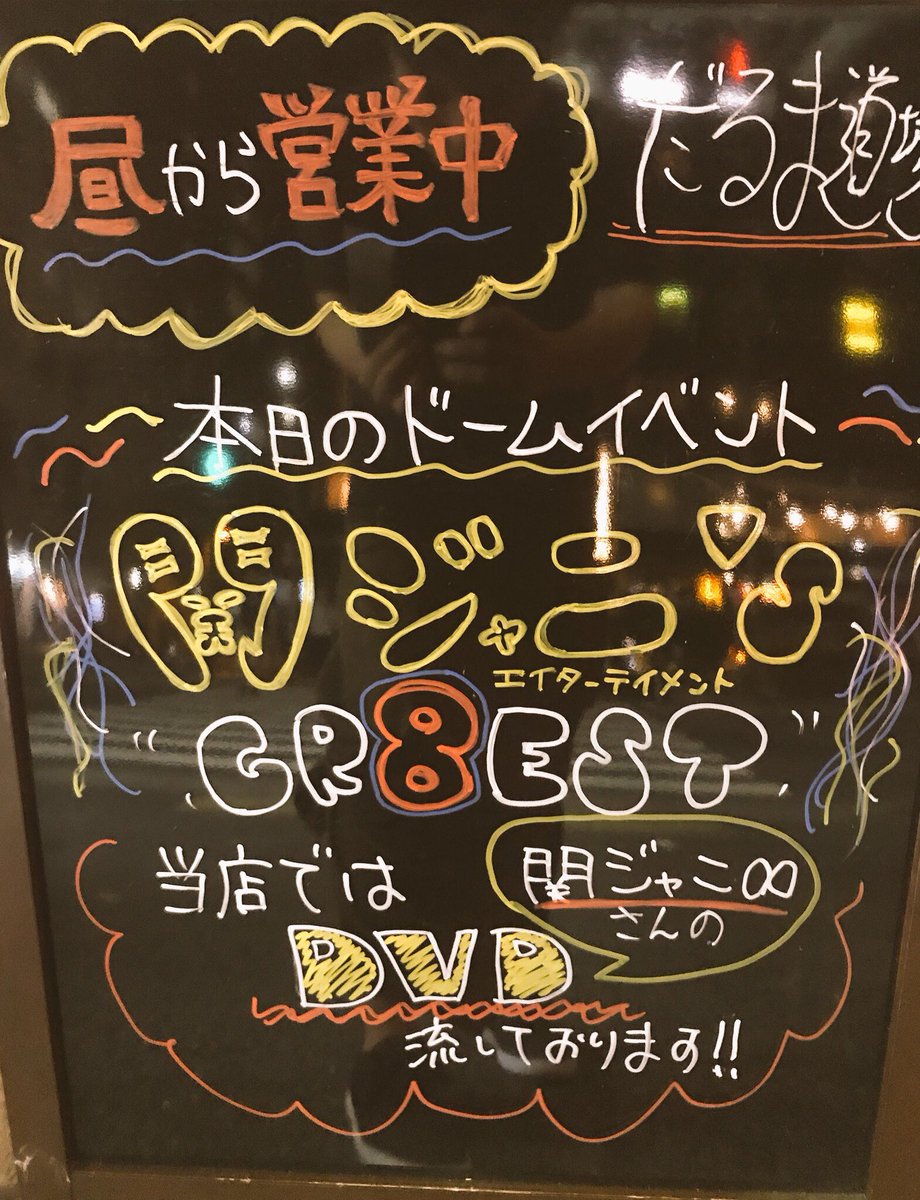 昼から営業中
だるま道場
本日のドームイベント
関ジャニ∞
エイターテイメント
"GR8EST"
当店では
関ジャニ∞
さんの
DVD
流しております!!